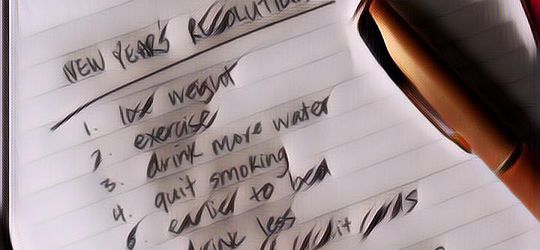 NEW YEAR'S RESOLUTIONS
1. lose weight
2. exercise
3. drink more water
4. quit smoking
earlier to bed
drink less